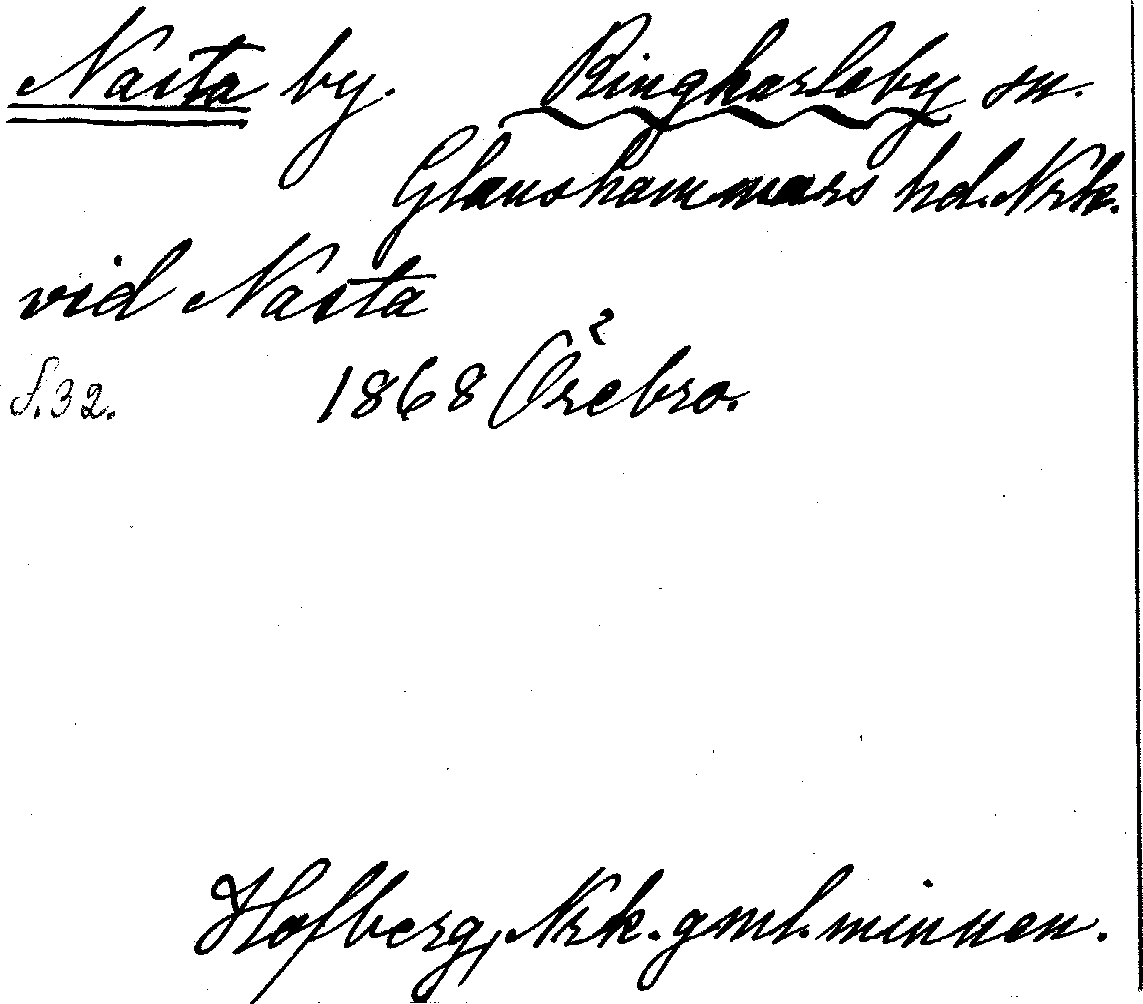 Nasta by. Ringkarleby sn.
Glanshammars hd. Nrk.
vid Nasta
S. 32. 1868 Örebro.
Hofberg, Nrk. gml. minnen.